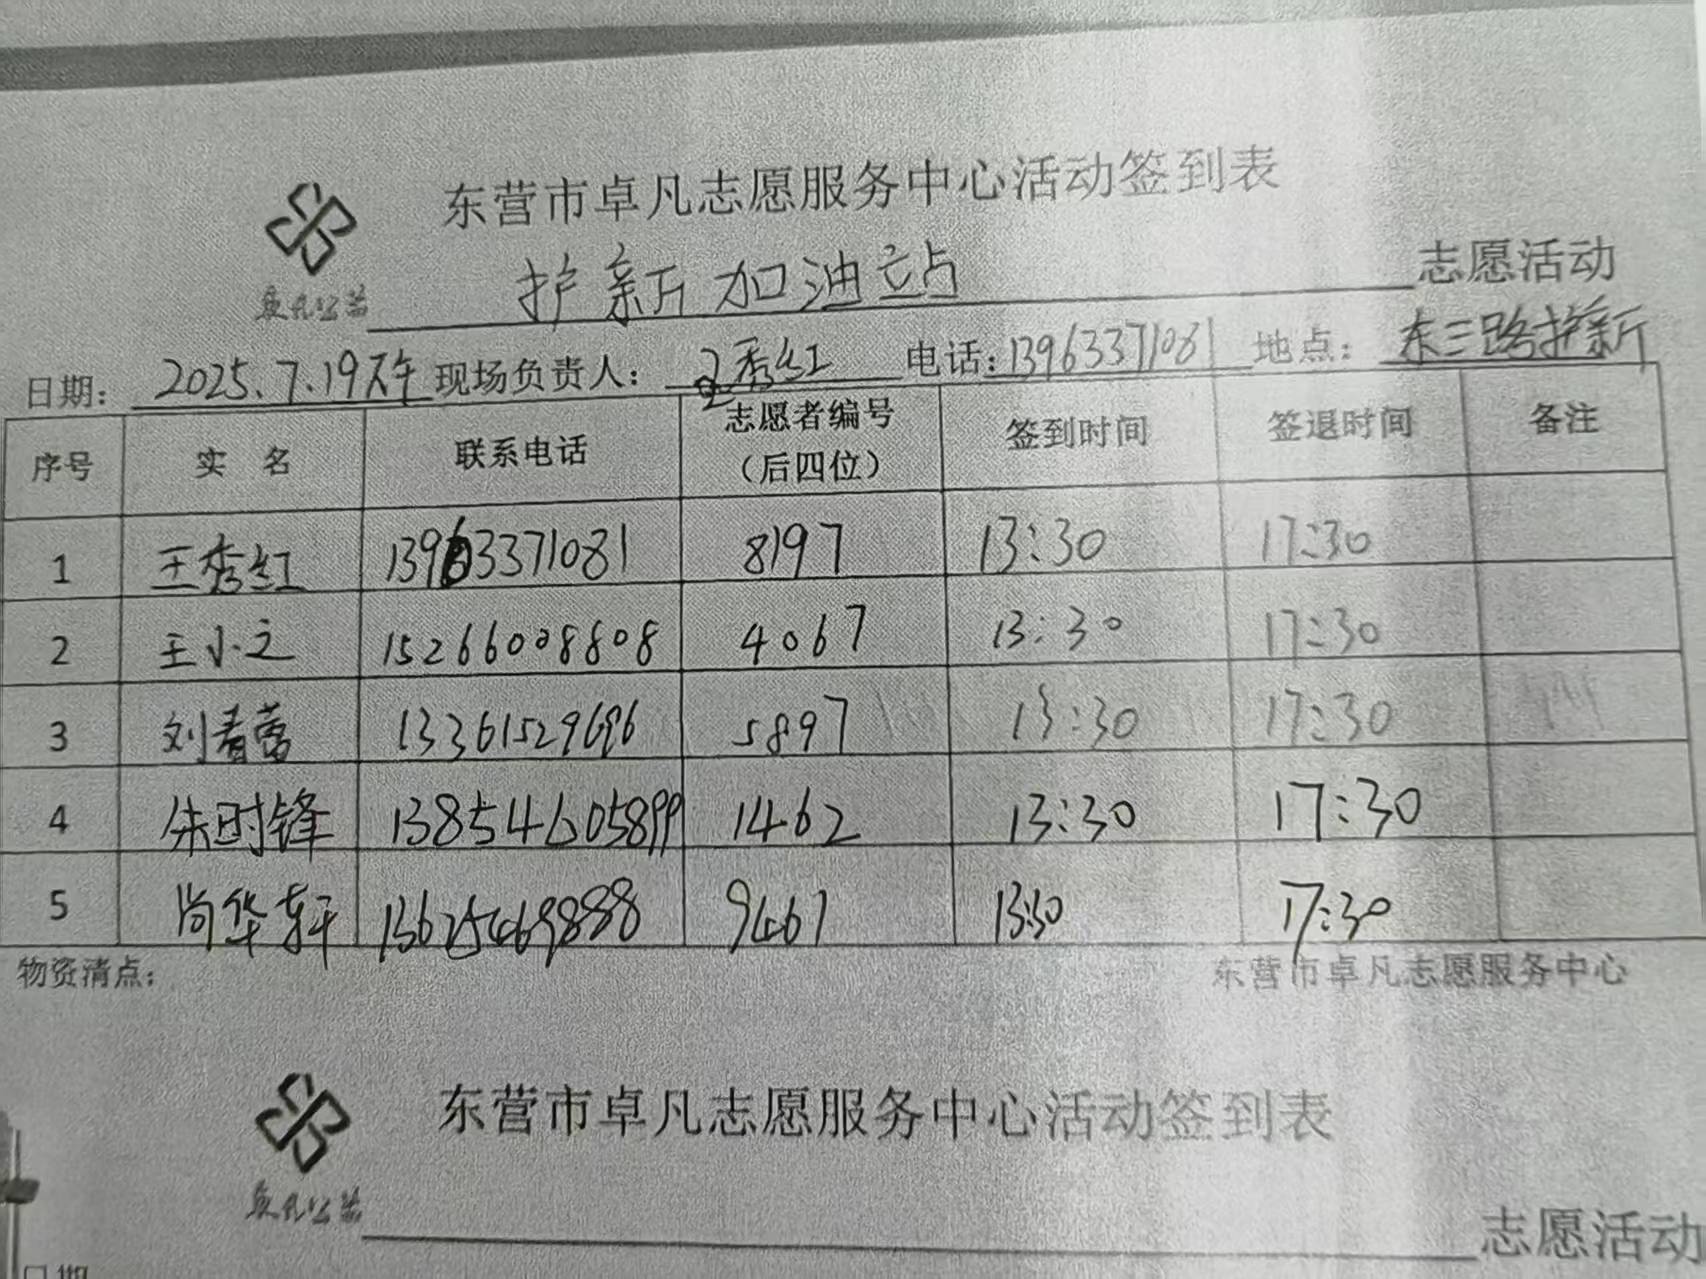 东营市卓凡志愿服务中心活动签到表
卓凡公益 护新加油站 志愿活动
日期: 2025.7.19下午 现场负责人: 王秀红 电话: 13963371081 地点: 东三路护新
序号 实 名 联系电话 志愿者编号（后四位） 签到时间 签退时间 备注
1 王秀红 13963371081 8197 13:30 17:30
2 王小之 15266008808 4067 13:30 17:30
3 刘春蕾 13361529696 5897 13:30 17:30
4 朱时锋 13854605899 1462 13:30 17:30
5 尚华轩 13625469888 9461 13:30 17:30
物资清点: 东营市卓凡志愿服务中心
东营市卓凡志愿服务中心活动签到表
卓凡公益 志愿活动
日期